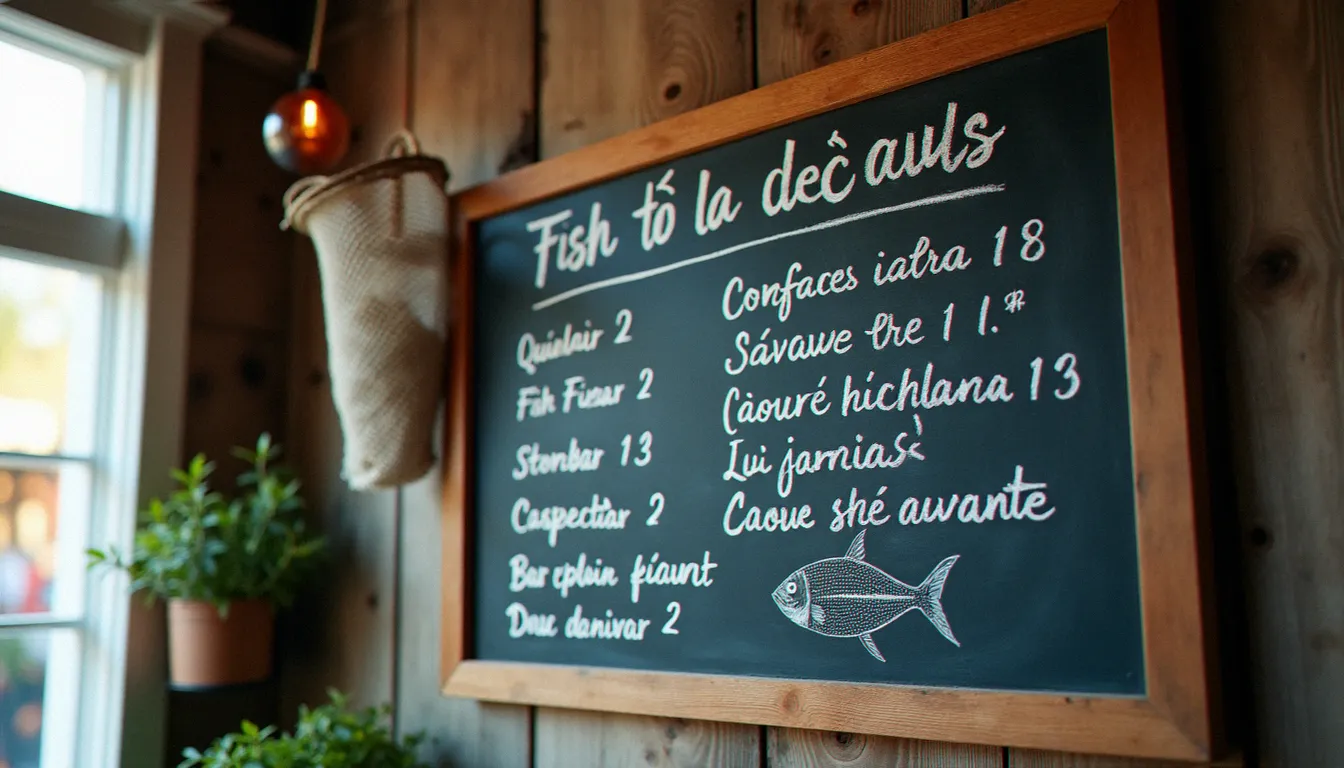 Fish tó la decĉ auls
Quielair 2
Fish Finar 2
Stonbar 13
Caspectiar 2
Bar eplain fíaunt
Dnue danivar 2
Confaces iatra 18
Sávawe ere 1 1.*
Càouré hichlana 13
Lui jarnias
Caoue shé awante